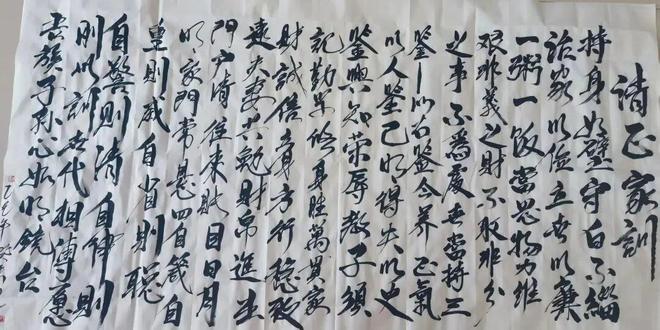 清正家訓
持身如璧守白不緇
治家以儉立世以廉
一粥一飯當思物力維
艱非義之財不取非分
之事不為處世當持三
鉴一以古鉴今养正氣
以人鉴己明得失以史
鉴興知荣辱教子須
記勤学修身胜萬貫家
財誠信立身方行稳致
遠夫妻共勉財帛進出
門户清往来賬目日月
明家門常悬四自箴自
重則威自省則聪
自警則清自律則
則以訓世代相傳愿
吾族子孙心如明镜台
乙巳年